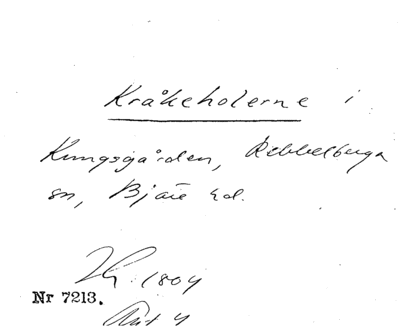 Kråkeholerne i
Kungsgården, Rebbelberga
sn, Bjäre hd.
1804
Nr 7213.